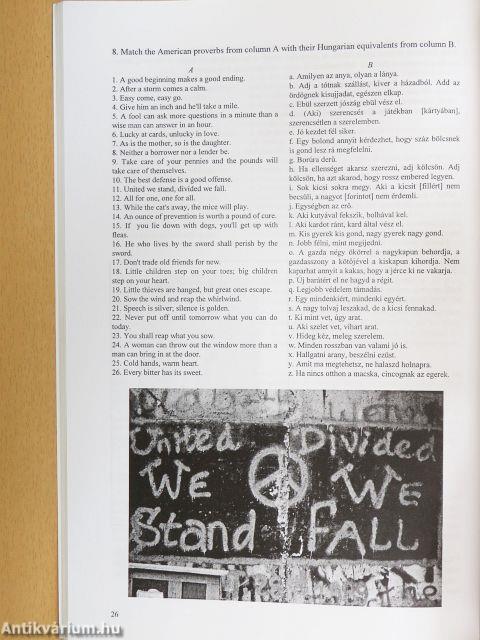 8. Match the American proverbs from column A with their Hungarian equivalents from column B.
A
1. A good beginning makes a good ending.
2. After a storm comes a calm.
3. Easy come, easy go.
4. Give him an inch and he'll take a mile.
5. A fool can ask more questions in a minute than a
wise man can answer in an hour.
6. Lucky at cards, unlucky in love.
7. As is the mother, so is the daughter.
8. Neither a borrower nor a lender be.
9. Take care of your pennies and the pounds will
take care of themselves.
10. The best defense is a good offense.
11. United we stand, divided we fall.
12. All for one, one for all.
13. While the cat's away, the mice will play.
14. An ounce of prevention is worth a pound of cure.
15. If you lie down with dogs, you'll get up with
fleas.
16. He who lives by the sword shall perish by the
sword.
17. Don't trade old friends for new.
18. Little children step on your toes; big children
step on your heart.
19. Little thieves are hanged, but great ones escape.
20. Sow the wind and reap the whirlwind.
21. Speech is silver; silence is golden.
22. Never put off until tomorrow what you can do
today.
23. You shall reap what you sow.
24. A woman can throw out the window more than a
man can bring in at the door.
25. Cold hands, warm heart.
26. Every bitter has its sweet.
B
a. Amilyen az anya, olyan a lánya.
b. Adj a tótnak szállást, kiver a házadból. Add az
ördögnek kisujjadat, egészen elkap.
c. Ebül szerzett jószág ebül vész el.
d. (Aki) szerencsés a játékban [kártyában],
szerencsétlen a szerelemben.
e. Jó kezdet fél siker.
f. Egy bolond annyit kérdezhet, hogy száz bölcsnek
is gond lesz rá megfelelni.
g. Borúra derű.
h. Ha ellenséget akarsz szerezni, adj kölcsön. Adj
kölcsön, ha azt akarod, hogy rossz embered legyen.
i. Sok kicsi sokra megy. Aki a kicsit [fillért] nem
becsüli, a nagyot [forintot] nem érdemli.
j. Egységben az erő.
k. Aki kutyával fekszik, bolhával kel.
l. Aki kardot ránt, kard által vész el.
m. Kis gyerek kis gond, nagy gyerek nagy gond.
n. Jobb félni, mint megijedni.
o. A gazda négy ökörrel a nagykapun behordja, a
gazdasszony a kötőjével a kiskapun kihordja. Nem
kaparhat annyit a kakas, hogy a jérce ki ne vakarja.
p. Új barátért el ne hagyd a régit.
q. Legjobb védelem támadás.
r. Egy mindenkiért, mindenki egyért.
s. A nagy tolvaj leszakad, de a kicsi fennakad.
t. Ki mint vet, úgy arat.
u. Aki szelet vet, vihart arat.
v. Hideg kéz, meleg szerelem.
w. Minden rosszban van valami jó is.
x. Hallgatni arany, beszélni ezüst.
y. Amit ma megtehetsz, ne halaszd holnapra.
z. Ha nincs otthon a macska, cincognak az egerek.
United Divided
WE WE
Stand FALL
26
Antikvárium.hu